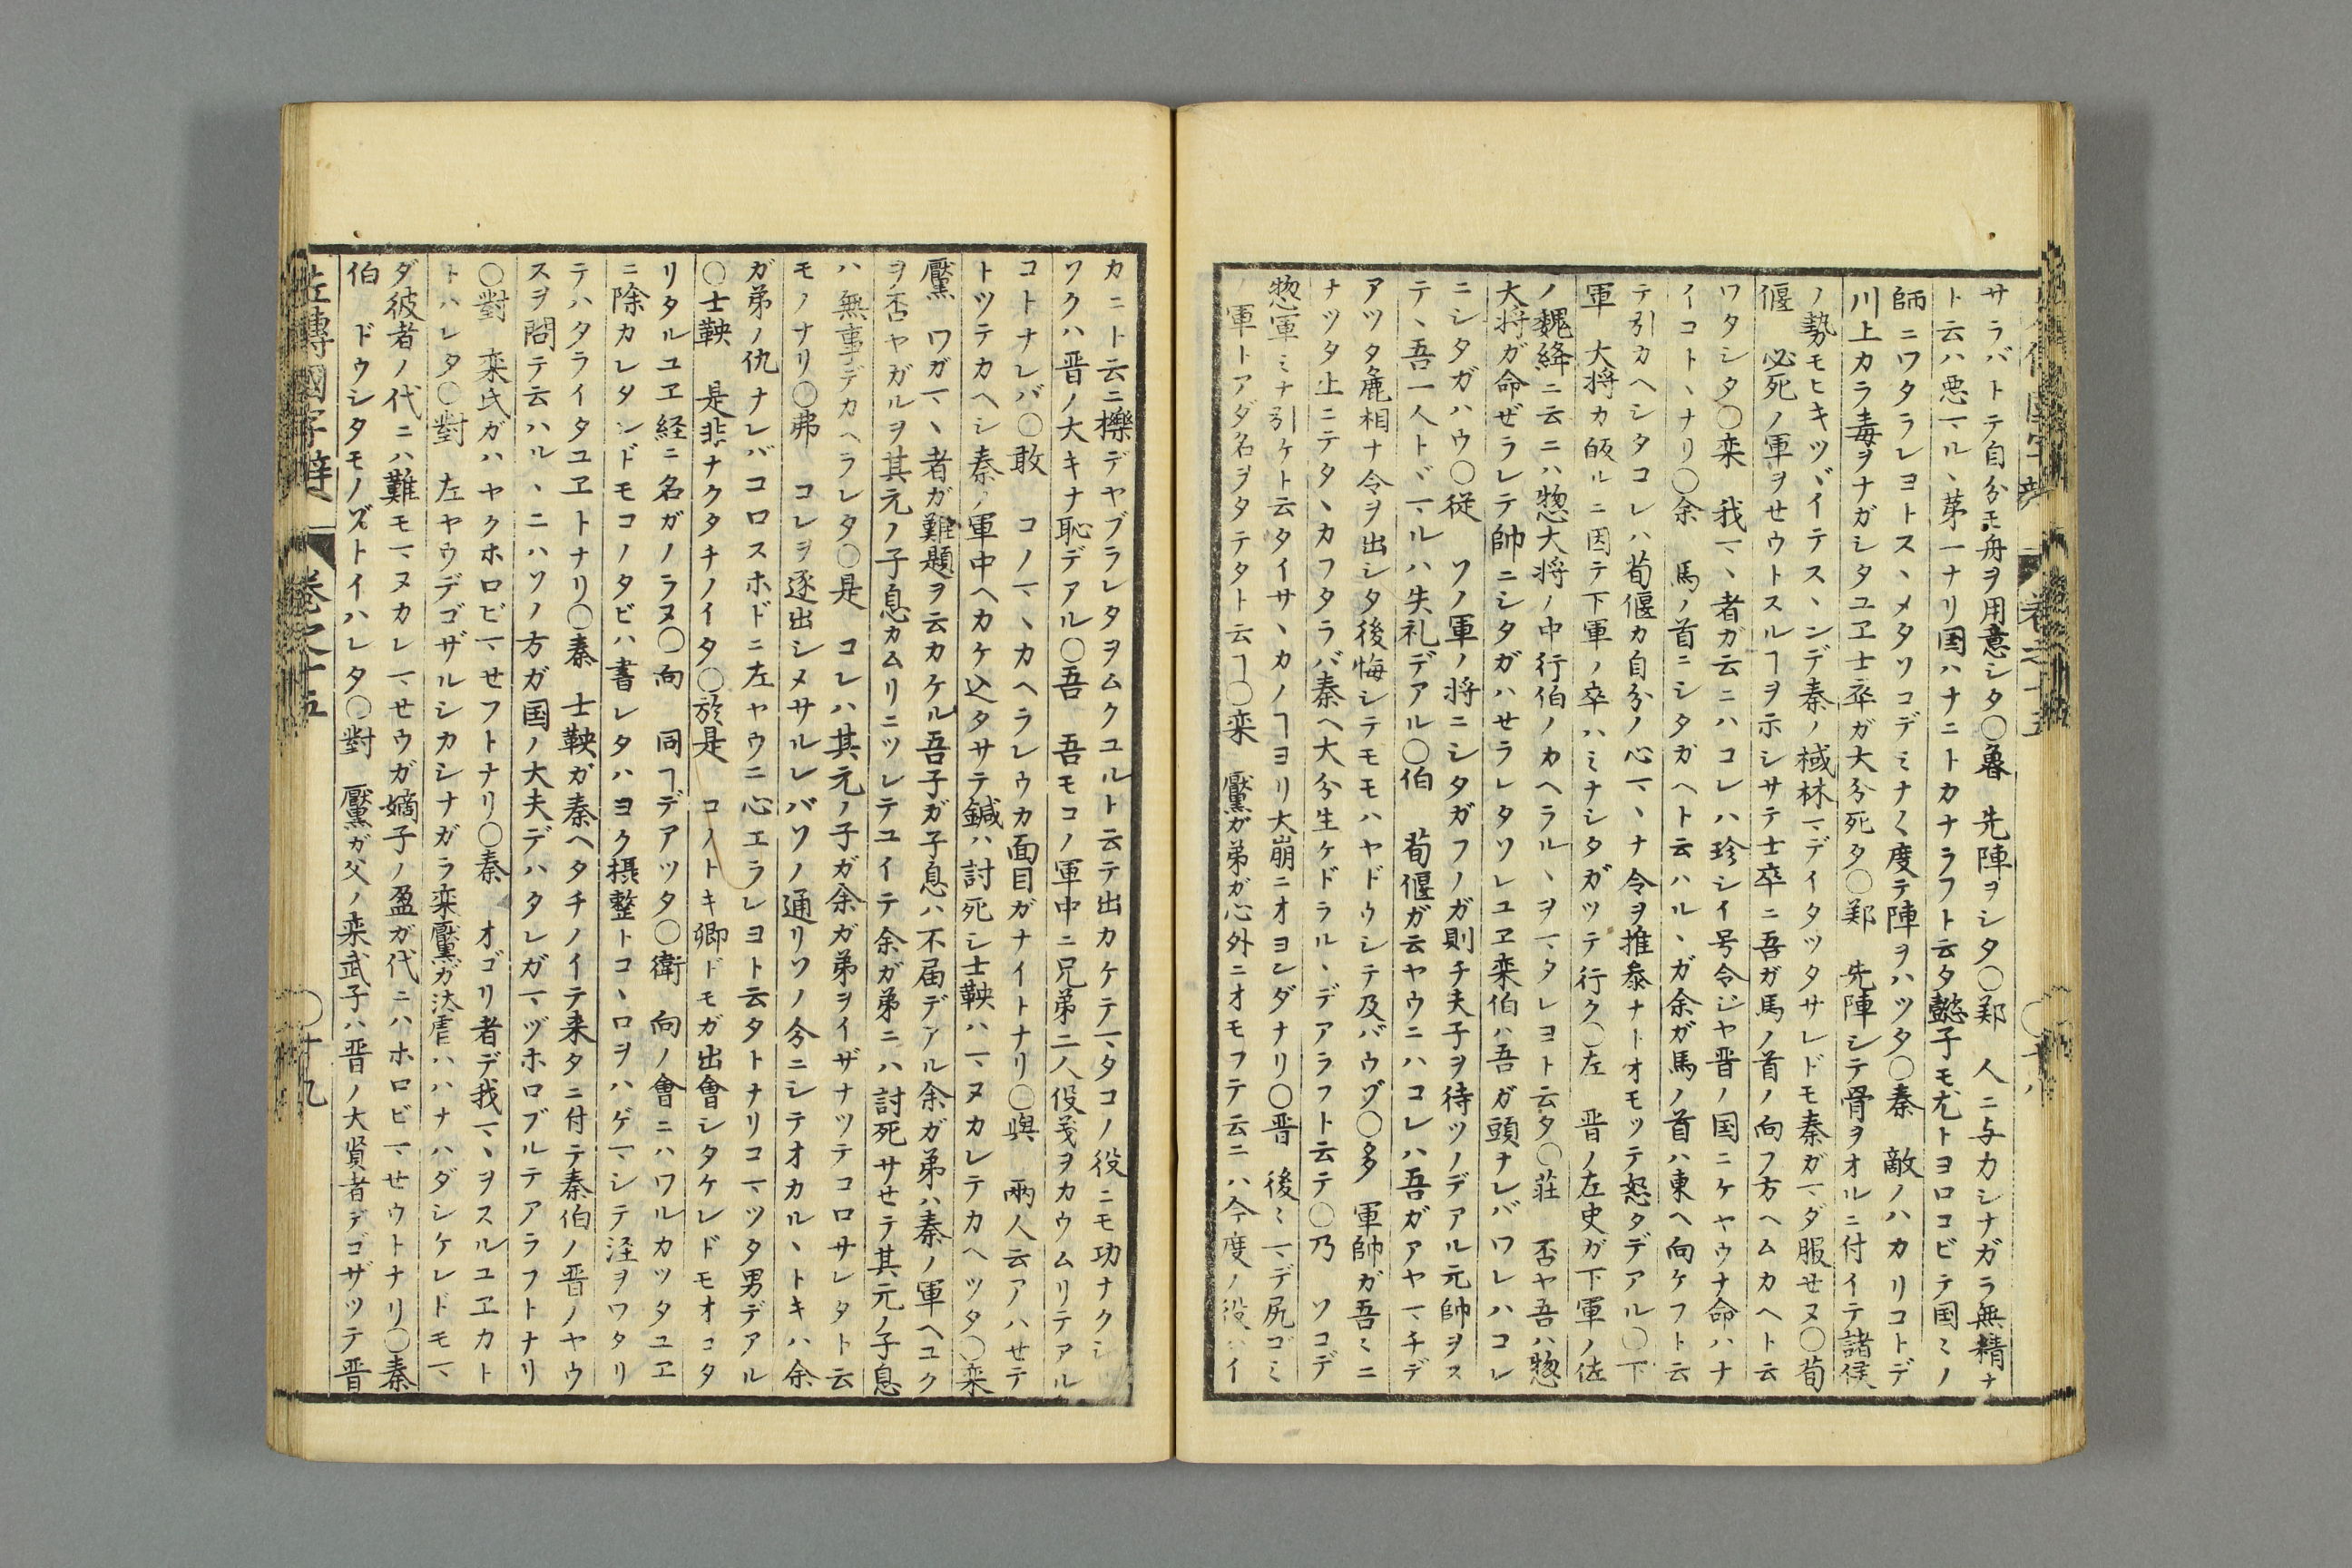 サラバトテ自分モ舟ヲ用意シタ○魯　先陣ヲシタ○鄭　人ニ与カシナガラ無精ナ
ト云ハ悪マル丶苐一ナリ国ハナニトカナラフト云タ懿子モ尤トヨロコビテ国ミノ
師ニワタラレヨトス丶メタソコデミナ〱度テ陣ヲハツタ○秦　敵ノハカリコトデ
川上カラ毒ヲナガシタユヱ士卒ガ大分死タ○鄭　先陣シテ骨ヲオルニ付イテ諸侯
ノ勢モヒキツヾイテス丶ンデ秦ノ棫林マデイタツタサレドモ秦ガマダ服せヌ○荀
偃　必死ノ軍ヲせウトスルヿヲ示シサテ士卒ニ吾ガ馬ノ首ノ向フ方ヘムカヘト云
ワタシタ○栾　我マ丶者ガ云ニハコレハ珍シイ号令ジヤ晋ノ国ニケヤウナ命ハナ
イコト丶ナリ○余　馬ノ首ニシタガヘト云ハル丶ガ余ガ馬ノ首ハ東ヘ向ケフト云
テ引カヘシタコレハ荀偃カ自分ノ心マ丶ナ令ヲ推泰ナトオモツテ怒タデアル○下
軍　大将カ皈ルニ因テ下軍ノ卒ハミナシタガツテ行ク○左　晋ノ左史ガ下軍ノ佐
ノ魏絳ニ云ニハ惣大将ノ中行伯ノカヘラル丶ヲマタレヨト云タ○荘　否ヤ吾ハ惣
大将ガ命ぜラレテ帥ニシタガハせラレタソレユヱ栾伯ハ吾ガ頭ナレバワレハコレ
ニシタガハウ○従　ソノ軍ノ将ニシタガフノガ則チ夫子ヲ待ツノデアル元帥ヲス
テ丶吾一人トヾマルハ失礼デアル○伯　荀偃ガ云ヤウニハコレハ吾ガアヤマチデ
アツタ麁相ナ令ヲ出シタ後悔シテモモハヤドウシテ及バウゾ○多　軍帥ガ吾ミニ
ナツタ上ニテタ丶カフタラバ秦ヘ大分生ケドラル丶デアラフト云テ○乃　ソコデ
惣軍ミナ引ケト云タイサ丶カノヿヨリ大崩ニオヨンダナリ○晋　後ミマデ尻ゴミ
ノ軍トアダ名ヲタテタト云ヿ○栾　黶ガ弟ガ心外ニオモフテ云ニハ今度ノ役ハイ
カニト云ニ櫟デヤブラレタヲムクユルト云テ出カケテマタコノ役ニモ功ナクシ
ソクハ晋ノ大キナ恥デアル○吾　吾モコノ軍中ニ兄弟二人役義ヲカウムリテアル
コトナレバ○敢　コノマ丶カヘラレウカ面目ガナイトナリ○與　兩人云アハせテ
トツテカヘシ秦ノ軍中ヘカケ込タサテ鍼ハ討死シ士鞅ハマヌカレテカヘツタ○栾
黶　ワガマ丶者ガ難題ヲ云カケル吾子ガ子息ハ不届デアル余ガ弟ハ秦ノ軍ヘユク
ヲ否ヤガルヲ其元ノ子息カムリニツレテユイテ余ガ弟ニハ討死サせテ其元ノ子息
ハ無事デカヘラレタ○是　コレハ其元ノ子ガ余ガ弟ヲイザナツテコロサレタト云
モノナリ○弗　コレヲ逐出シメサルレバソノ通リソノ分ニシテオカル丶トキハ余
ガ弟ノ仇ナレバコロスホドニ左ヤウニ心エラレヨト云タトナリコマツタ男デアル
○士鞅　是非ナクタチノイタ○於是　コノトキ卿ドモガ出會シタケレドモオコタ
リタルユヱ経ニ名ガノラヌ○向　同ヿデアツタ○衛　向ノ會ニハワルカツタユヱ
ニ除カレタレドモコノタビハ書レタハヨク摂整トコ丶ロヲハゲマシテ涇ヲワタリ
テハタライタユヱトナリ○秦　士鞅ガ秦ヘタチノイテ来タニ付テ秦伯ノ晋ノヤウ
スヲ問テ云ハル丶ニハソノ方ガ国ノ大夫デハタレガマヅホロブルテアラフトナリ
○對　栾氏ガハヤクホロビマせフトナリ○秦　オゴリ者デ我マ丶ヲスルユヱカト
トハレタ○對　左ヤウデゴザルシカシナガラ栾黶ガ汰虐ハハナハダシケレドモマ
ダ彼者ノ代ニハ難モマヌカレマせウガ嫡子ノ盈ガ代ニハホロビマせウトナリ○秦
伯　ドウシタモノゾトイハレタ○對　黶ガ父ノ栾武子ハ晋ノ大賢者デゴザツテ晋
左傳國字辯　巻之十五　○十九